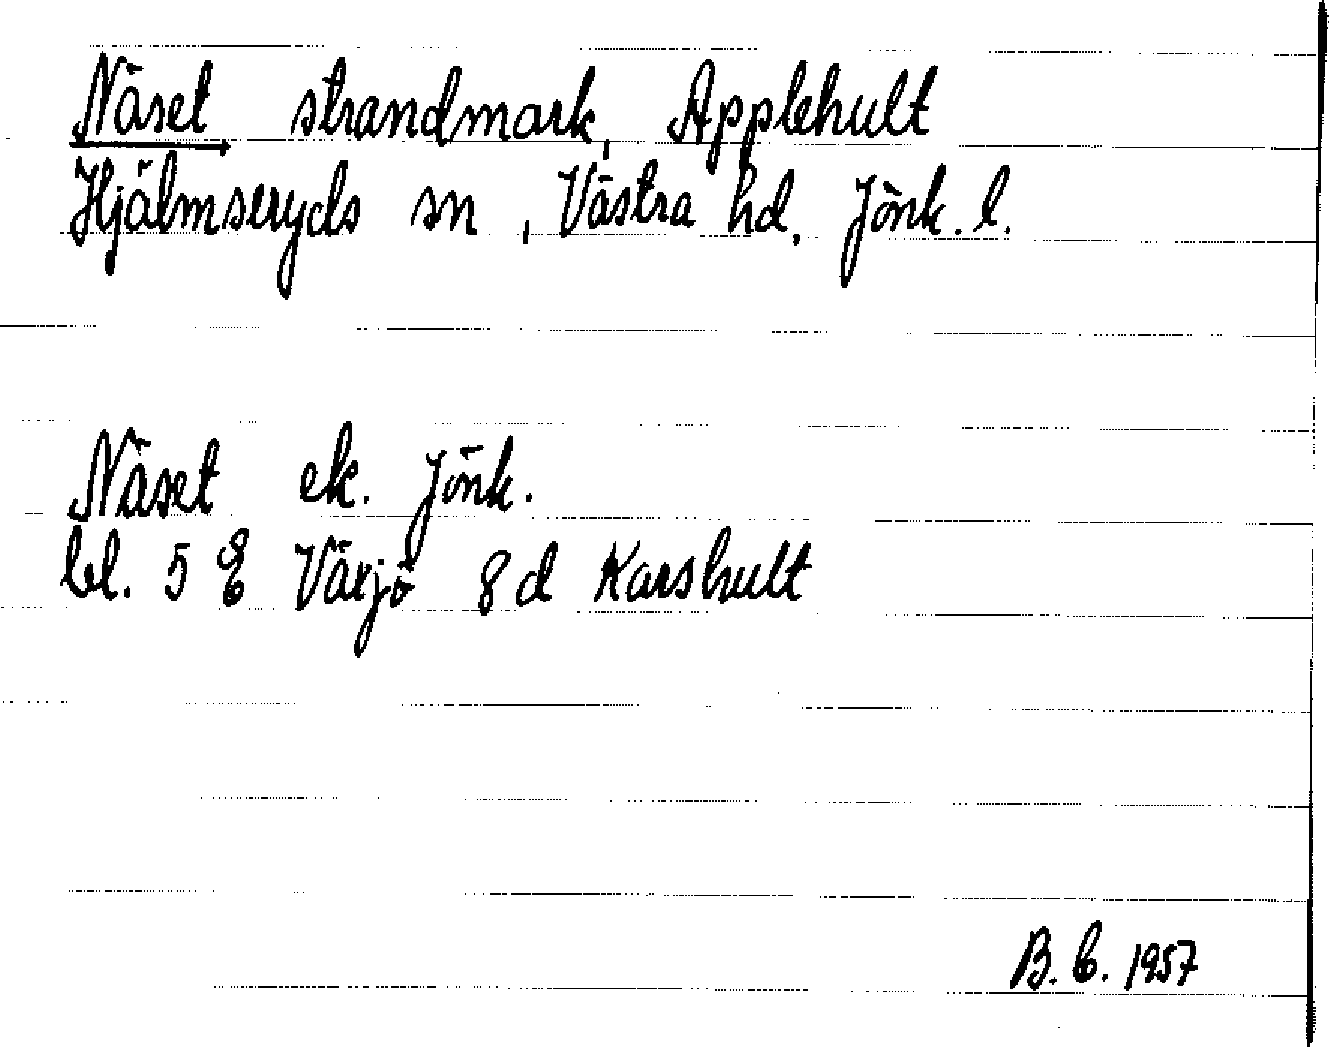 Näset strandmark, Applehult
Hjälmseryds sn, Västra hd, Jönk. l.
Näset ek. Jönk.
bl. 5 E Växjö 8 d Karshult
B. E. 1957